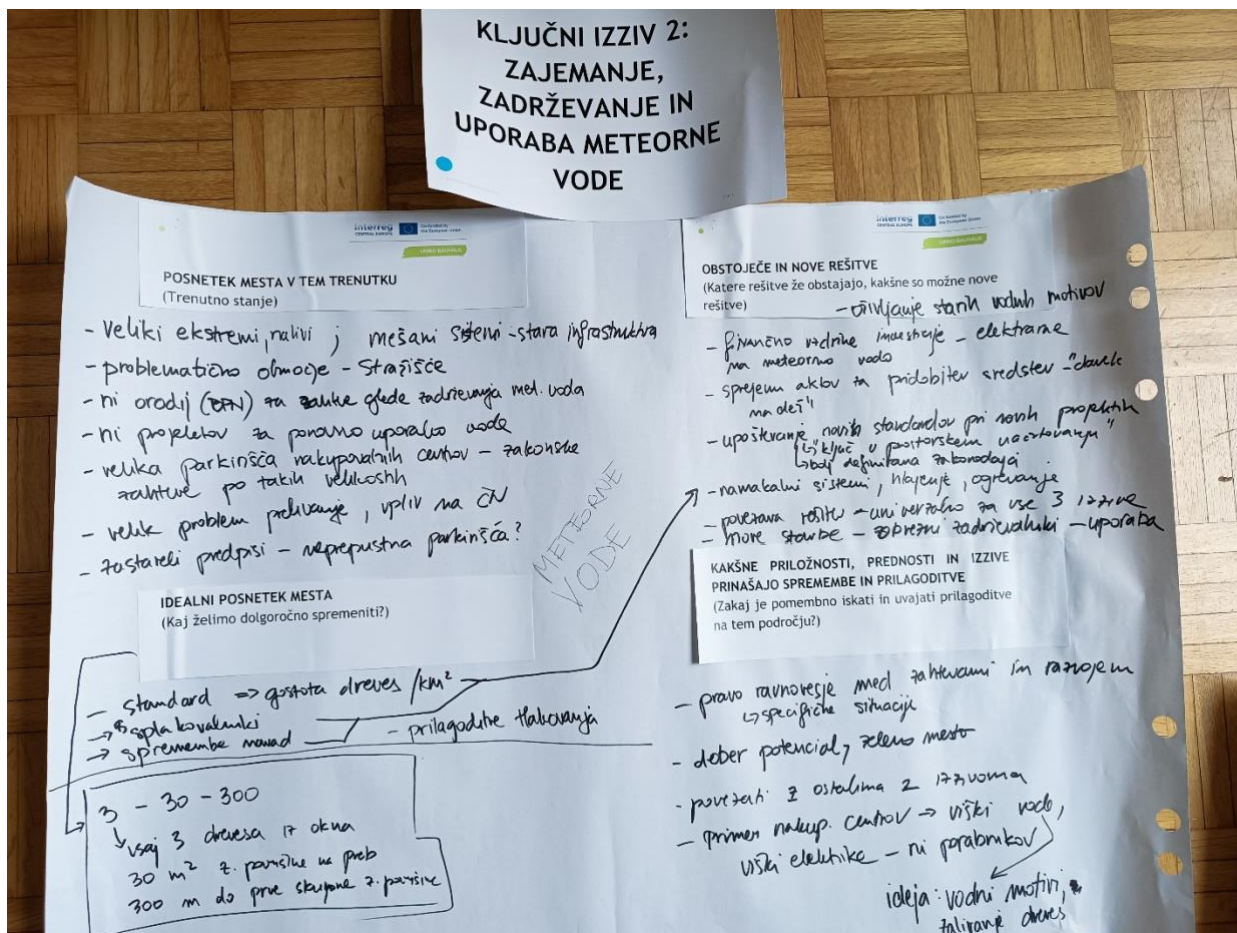 KLJUČNI IZZIV 2:
ZAJEMANJE,
ZADRŽEVANJE IN
UPORABA METEORNE
VODE
Interreg
CENTRAL EUROPE
Co-funded by
the European Union
POSNETEK MESTA V TEM TRENUTKU
(Trenutno stanje)
- Veliki ekstremi, nalivi ; mešani sistemi - stara infrastruktura
- problematično območje - Stražišče
- ni orodij (OPN) za glede zadrževanja met. voda
- ni projektov za ponovno uporabo vode
- velika parkirišča nakupovalnih centrov - zakonske
zahteve po takih velikostih
- velik problem prelivanje, vpliv na ČN
- zastareli predpisi - neprepustna parkirišča?
METEORNE
VODE
IDEALNI POSNETEK MESTA
(Kaj želimo dolgoročno spremeniti?)
- standard => gostota dreves /km²
→ splakovalniki
→ spremembe navad - prilagoditve tlakovanja
3 - 30 - 300
vsaj 3 drevesa iz okna
30 m² z. površine na preb
300 m do prve skupne z. površine
Interreg
CENTRAL EUROPE
Co-funded by
the European Union
OBSTOJEČE IN NOVE REŠITVE
(Katere rešitve že obstajajo, kakšne so možne nove
rešitve)
- oživljanje starih vodnih motivov
- finančno vzdržne investicije - elektrarne
na meteorno vodo
- sprejem aktov za pridobitev sredstev - "davek
na dež"
- upoštevanje novih standardov pri novih projektih
↳ "ključ v prostorskem načrtovanju"
↳ bolj definirana zakonodaja
- namakalni sistemi, hlajenje, ogrevanje
- povezava rešitev - univerzalno za vse 3 izzive
- nove stavbe - zadrževalniki - uporaba
KAKŠNE PRILOŽNOSTI, PREDNOSTI IN IZZIVE
PRINAŠAJO SPREMEMBE IN PRILAGODITVE
(Zakaj je pomembno iskati in uvajati prilagoditve
na tem področju?)
- pravo ravnovesje med zahtevami in razvojem
↳ specifične situacije
- dober potencial, zeleno mesto
- povezati z ostalima 2 izzivoma
- primer nakup. centrov → viški vode,
viški elektrike - ni porabnikov
ideja: vodni motivi,
zalivanje dreves